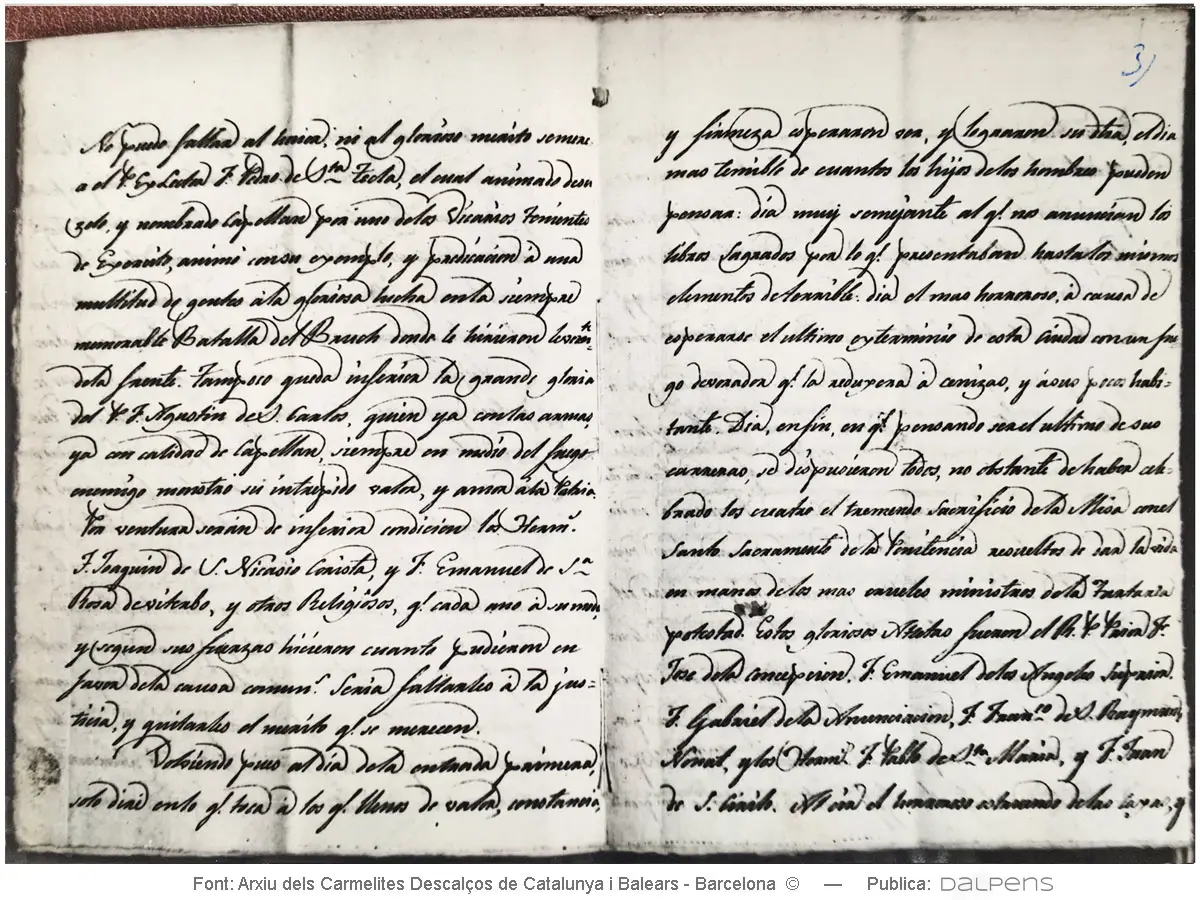 No puedo faltar al unico, ni al glorioso merito se mere
a el P. Ex Lector F. Pedro de Sta Tecla, el cual animado de su
zelo, y nombrado Capellan por uno de los Vicarios Tenientes
de Exercito, animó con su exemplo, y predicacion á una
multitud de gentes á la gloriosa lucha en la siempre
memorable Batalla del Bruch donde le hirieron
de la frente. Tampoco queda inferior la grande gloria
del P. F. Agustin de S. Carlos, quien ya con las armas,
ya con calidad de Capellan, siempre en medio del fuego
enemigo mostró su intrepido valor, y amor á la Patria.
Por ventura serán de inferior condicion los Herms.
F. Joaquin de S. Nicasio Corista, y F. Emanuel de Sa
Rosa de viterbo, y otros Religiosos, q. cada uno á su modo,
y segun sus fuerzas hicieron cuanto pudieron en
favor de la causa comun. Seria faltarles á la jus=
ticia, y quitarles el merito q. se merecen.
Volviendo pues al dia de la entrada primera,
solo diré en lo q. toca á los q. llenos de valor, constancia,
3)
y firmeza esperaron ver, y lograron su dia, el dia
mas terrible de cuantos los hijos de los hombres pueden
pensar: dia muy semejante al q. nos anuncian los
libros sagrados por lo q. presentaban hasta los mismos
elementos de terrible: dia el mas horroroso, á causa de
esperarse el ultimo exterminio de esta Ciudad con un fue
go devorador q. la reduxera á cenizas, y á sus pocos habi=
tantes. Dia, en fin, en q. pensando ser el ultimo de sus
carreras, se dispusieron todos, no obstante de haber cele=
brado los cuatro el tremendo Sacrificio de la Misa con el
Santo Sacramento de la Penitencia resueltos de dar la vida
en manos de los mas crueles ministros de la Tartaria
potestad. Estos gloriosos Atletas fueron el R. P. Prior F.
Jose de la Concepcion, F. Emanuel de los Angeles Suprior.
F. Gabriel de la Anunciacion, F. Franco de S. Raymundo
Nonat, y los Herms. F. Pablo de Sta Maria, y F. Juan
de S. Cirilo. Al oir el horroroso estruendo de las caxas, y
Font: Arxiu dels Carmelites Descalços de Catalunya i Balears - Barcelona © — Publica: DALPENS